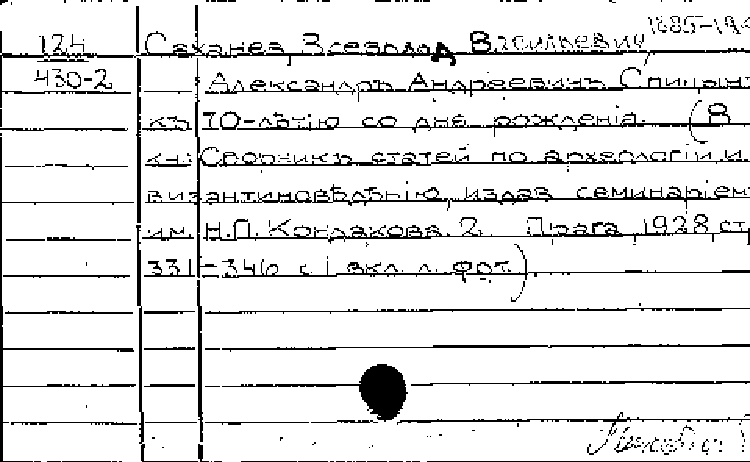 124 Саханев, Всеволод Васильевич 1885-19
430-2 Александръ Андреевичъ Спицынъ
къ 70-лѣтію со дня рожденія. (В
кн: Сборникъ статей по археологіи и
византиновѣдѣнію, издав. семинаріем
им. Н.П. Кондакова. 2. Прага 1928 ст
331-346 с 1 вкл. л. фот.)